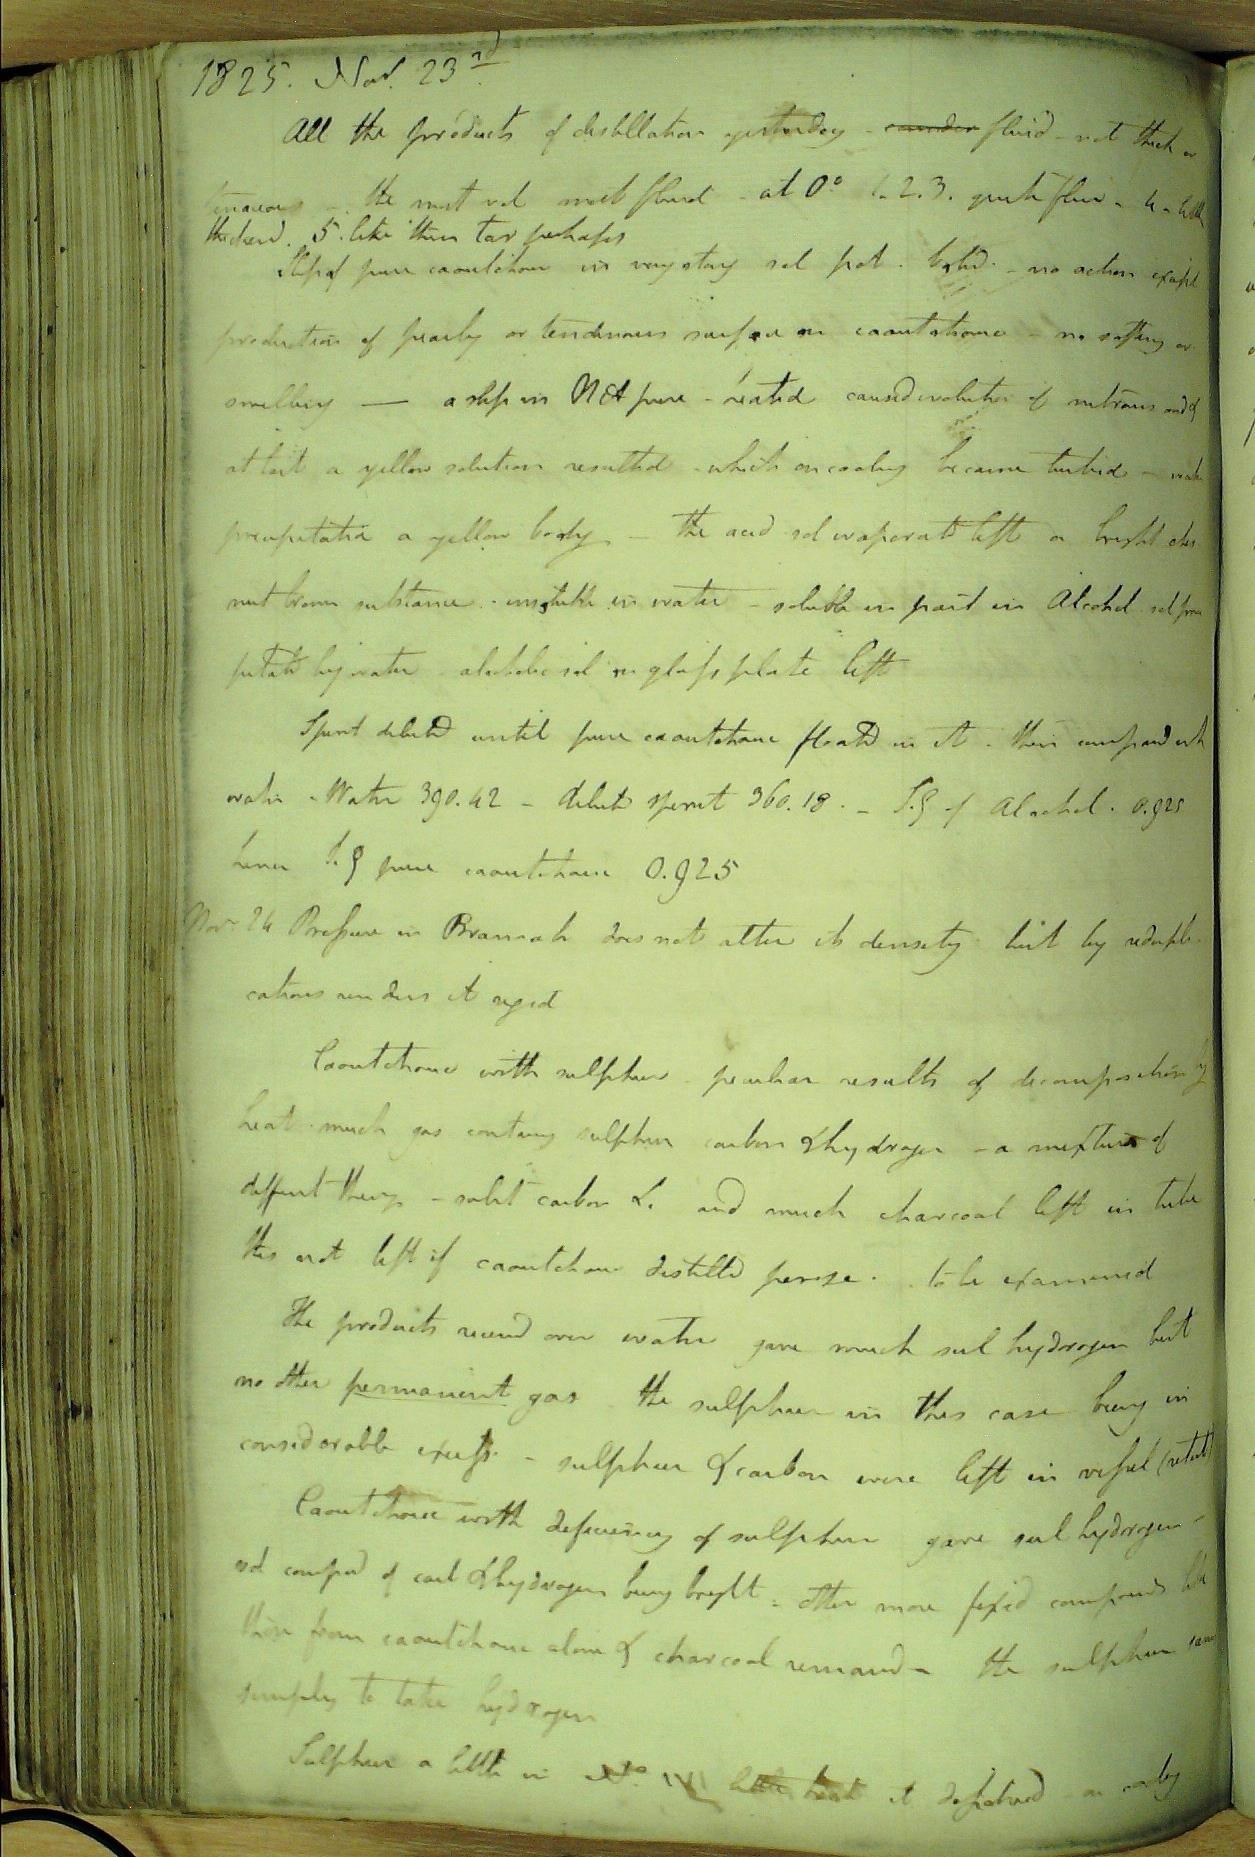 1825. Nov. 23rd
All the products of distillation yesterday - fluid - not thick or
tenacious - the most vol most fluid - at 0° 1. 2. 3. quite fluid - 4 a little
thickened. 5. like thin tar perhaps
Slip of pure caoutchouc in very strong sol pot. - no action except
production of pearly or tendinous surface on caoutchouc - no softing or
swelling — a slip in NA pure - heated caused evolution of nitrous and
at last a yellow solution resulted - which on cooling became turbid - water
precipitated a yellow body - the acid sol evaporatd left a bright ches
nut brown substance - insoluble in water - soluble in part in Alcohol sol preci
pitatd by water alcoholic sol on glass plate left
Spirit dilutd until pure caoutchouc floatd in it. then compared with
water - Water 390.42 - dilute spirit 360.18. - S.g of Alcohol. 0.925
hence S.g pure caoutchouc 0.925
Nov 24 Pressure in Bramah does not alter its density but by redupli
cations renders it rigid
Caoutchouc with sulphur peculiar results of decomposition by
heat. much gas containg sulphur carbon & hydrogen - a mixture of
different things - sulpt carbon &c and much charcoal left in tube
this not left if caoutchouc distilld perse. to be examined
The products recevd over water gave much sul hydrogen but
no other permanent gas the sulphur in this case being in
considerable excess - sulphur & carbon were left in vessel (retort)
Caoutchouc with deficiency of sulphur gave sul hydrogen -
no compnd of carb & hydrogen being bright - other more fixed compounds like
those from caoutchouc alone & charcoal remaind - the sulphur seems
simply to take hydrogen
Sulphur a little in No. it dissolved - on cooling